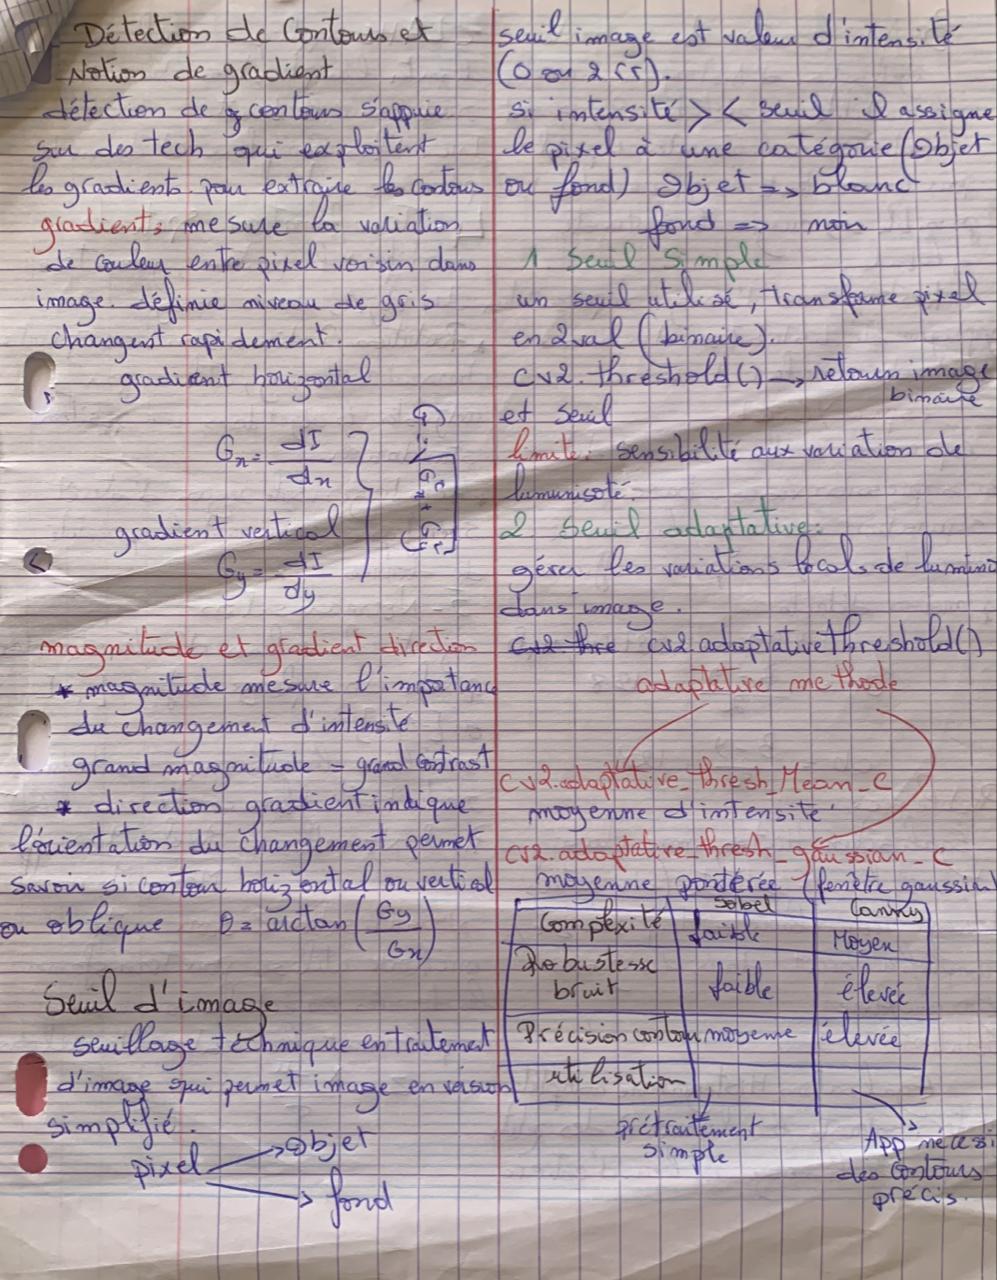 Détection de Contours et
Notion de gradient
détection de contours s'appuie
sur des tech qui exploitent
les gradients pour extraire les contours
gradient: mesure la variation
de couleur entre pixel voisin dans
image. définie niveau de gris
changent rapidement.
gradient horizontal
Gx = dI
dx
gradient vertical
Gy = dI
dy
magnitude et gradient direction
* magnitude mesure l'importance
du changement d'intensité
grand magnitude = grand contrast
* direction gradient indique
l'orientation du changement permet
savoir si contour horizontal ou vertical
ou oblique θ = arctan (Gy
Gx)
Seuil d'image
seuillage technique en traitement
d'image qui permet image en version
simplifié.
pixel → Objet
→ fond
seuil image est valeur d'intensité
(0 ou 255).
si intensité > < seuil il assigne
le pixel à une catégorie (Objet
ou fond) Objet => blanc
fond => noir
1 Seuil Simple
un seuil utilisé, transforme pixel
en 2 val (binaire).
cv2.threshold() → retourn image
binaire
et seuil
limite: sensibilité aux variation de
lumunisoté.
2 Seuil adaptative:
gérer les variations local de lumino
dans image.
cv2 thre cv2.adaptativethreshold()
adaptative methode
cv2.adaptative_thresh_Mean_C
moyenne d'intensité
cv2.adaptative_thresh_gaussian_C
moyenne pondérée (fenêtre gaussian)
Sobel Canny
Complexité faible Moyen
Robustesse
bruit faible élevée
Précision contour moyenne élevée
utilisation
prétraitement
simple
App nécessi
des Contours
précis.